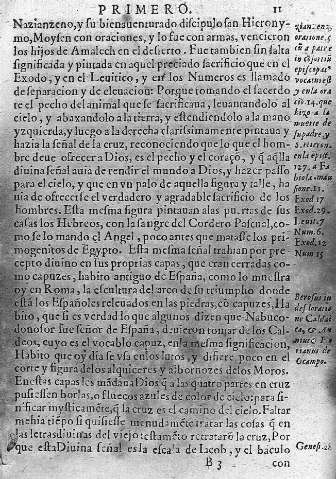 PRIMERO. 11
Nazianzeno, y su bienauenturado discipulo san Hierony-
mo, Moysen con oraciones, y Iosue con armas, vencieron
los hijos de Amalech en el desierto. Fue tambien sin falta
significada y pintada en aquel preciado sacrificio que en el
Exodo, y en el Leuitico, y en los Numeros es llamado
de separacion y de eleuacion: Porque tomando el sacerdo-
te el pecho del animal que se sacrificaua, leuantandolo al
cielo, y abaxandolo a la tierra, y estendiendolo a la mano
yzquierda, y luego a la derecha clarissimamente pintaua y
hazia la señal de la cruz, reconociendo que lo que el hom-
bre deue ofrecer a Dios, es el pecho y el coraçõ, y q̃ aq̃lla
diuina señal auia de rendir el mundo a Dios, y hazer passo
para el cielo, y que en vn palo de aquella figura y talle, ha
uia de ofrecerse el verdadero y agradable sacrificio de los
hombres. Esta mesma figura pintauan a las puertas de sus
casas los Hebreos, con la sangre del Cordero Pascual, co-
mo se lo mando el Angel, poco antes que matasse los pri-
mogenitos de Egypto. Esta mesma señal trahian por pre-
cepto diuino en sus proprias capas, que eran cerradas co-
mo capuzes, habito antiguo de España, como lo muestra
oy en Roma, la escultura del arco de su triumpho donde
està los Españoles releuados en las piedras, cõ capuzes. Ha
bito, que si es verdad lo que algunos dizen que Nabuco-
donosor fue señor de España, deuieron tomar de los Cal-
deos, cuyo es el vocablo capuz, en la mesma significacion,
Habito que oy dia se vsa en los lutos, y difiere poco en el
corte y figura de los alquiceres y albornozes de los Moros.
En estas capas les mãdaua Dios q̃ a las quatro partes en cruz
pusiessen borlas, o fluecos azules de color de cielo: para si-
nificar mysticamẽte, q̃ la cruz es el camino del cielo. Faltar
me hia tiẽpo si quisiesse menudamẽte tratar las cosas q̃ en
las letras diuinas del viejo testamẽto retratarõ la cruz, Por
que esta Diuina señal es la escala de Iacob, y el baculo
B 3 con
Exod. 17
Exod. 29.
Leuit. 7
Num. 6.
Exod. 12
Num. 15
Berosus in
Ocampo.
Genes. 28